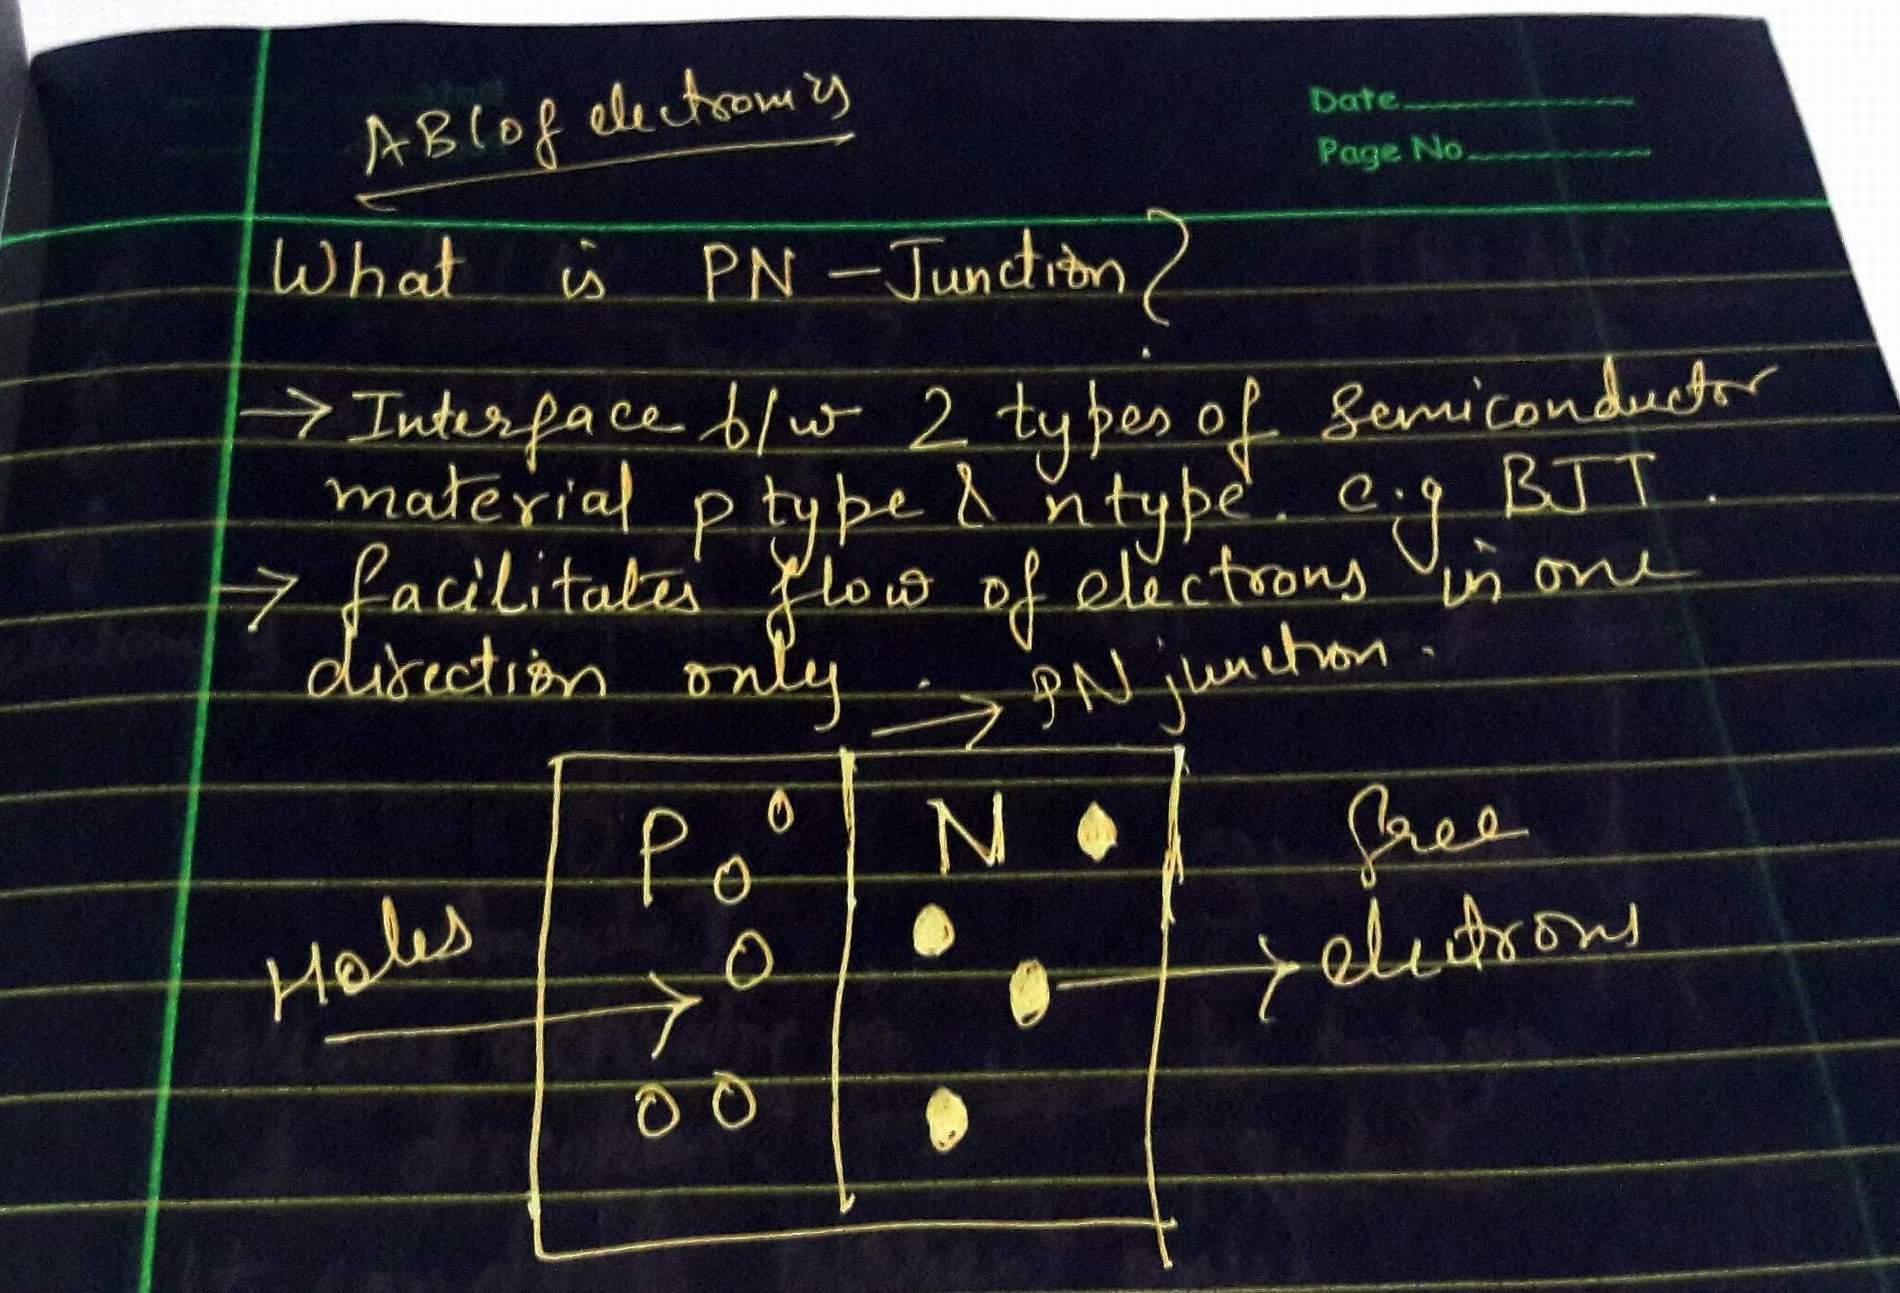 ABC of electronics
Date
Page No.
What is PN-Junction?
→ Interface b/w 2 types of semiconductor
material p type & n type. e.g BJT.
→ facilitates flow of electrons in one
direction only.
→ PN junction.
P
N
free
Holes
electrons